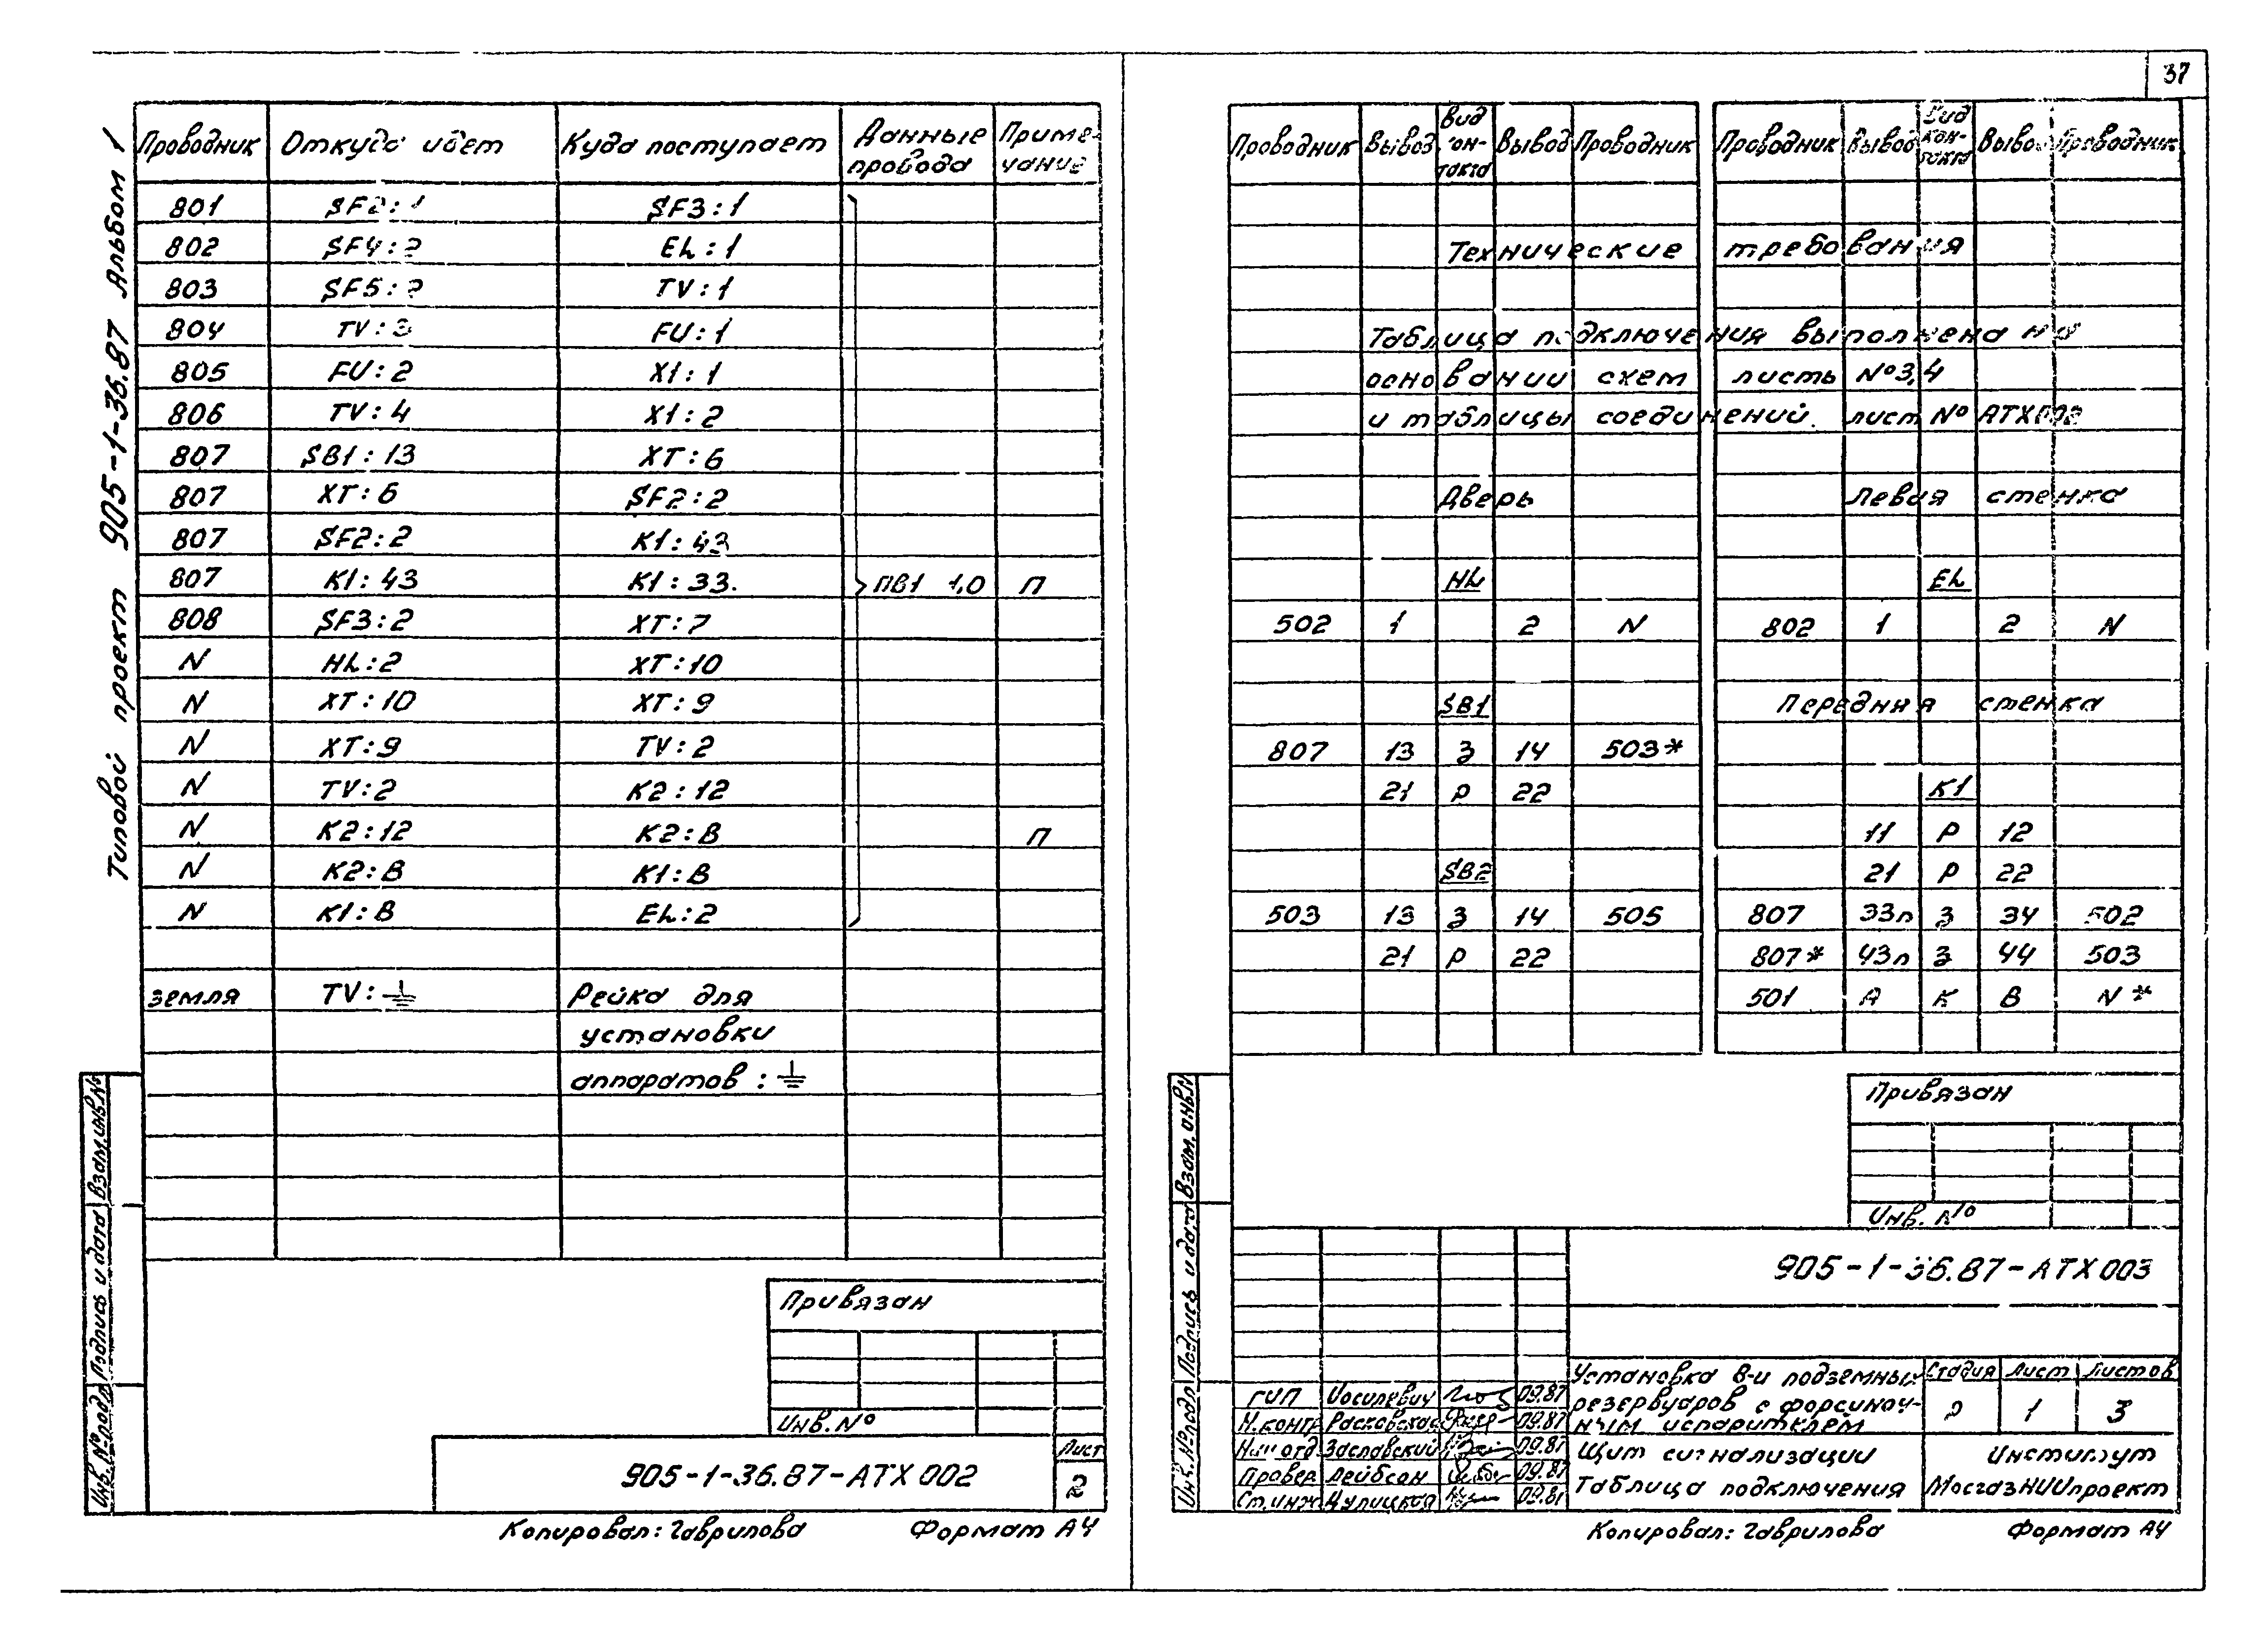 37
Типовой проект 905-1-36.87 Альбом 1
Проводник Откуда идет Куда поступает Данные провода Примечание
801 SF2:1 SF3:1
802 SF4:2 EL:1
803 SF5:2 TV:1
804 TV:3 FU:1
805 FU:2 X1:1
806 TV:4 X1:2
807 SB1:13 XT:6
807 XT:6 SF2:2
807 SF2:2 K1:43
807 K1:43 K1:33. ПВ1 1,0 П
808 SF3:2 XT:7
N HL:2 XT:10
N XT:10 XT:9
N XT:9 TV:2
N TV:2 K2:12
N K2:12 K2:B П
N K2:B K1:B
N K1:B EL:2
земля TV:⏚ Рейка для
установки
аппаратов:⏚
Взам.инв.№
Подпись и дата
Инв.№подл
Привязан
Инв.№
905-1-36.87-АТХ 002
Лист
2
Копировал: Гаврилова Формат А4
Проводник Вывод Вид контакта Вывод Проводник Проводник Вывод Вид контакта Вывод Проводник
Технические требования
Таблица подключения выполнена на
основании схем листь №3,4
и таблицы соединений. лист № АТХ002
Дверь Левая стенка
HL EL
502 1 2 N 802 1 2 N
SB1 Передняя стенка
807 13 З 14 503*
21 Р 22 K1
11 Р 12
SB2 21 Р 22
503 13 З 14 505 807 33п З 34 502
21 Р 22 807* 43п З 44 503
501 А К В N*
Взам.инв.№
Подпись и дата
Инв.№подл
Привязан
Инв. №
905-1-36.87-АТХ 003
Установка 8-и подземных
резервуаров с форсуноч-
ным испарителем
Стадия Лист Листов
Р 1 3
ГИП Иосилевич 09.87
Н.контр Расковская 09.87
Нач отд Заславский 09.87
Провер Лейбсон 09.87
Ст.инж Цулицкая 09.87
Щит сигнализации
Таблица подключения
Институт
МосгазНИИпроект
Копировал: Гаврилова Формат А4